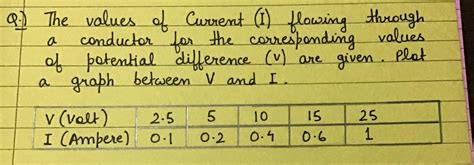 Q:) The values of Current (I) flowing through
a conductor for the corresponding values
of potential difference (V) are given. Plot
a graph between V and I.
V (volt) 2.5 5 10 15 25
I (Ampere) 0.1 0.2 0.4 0.6 1